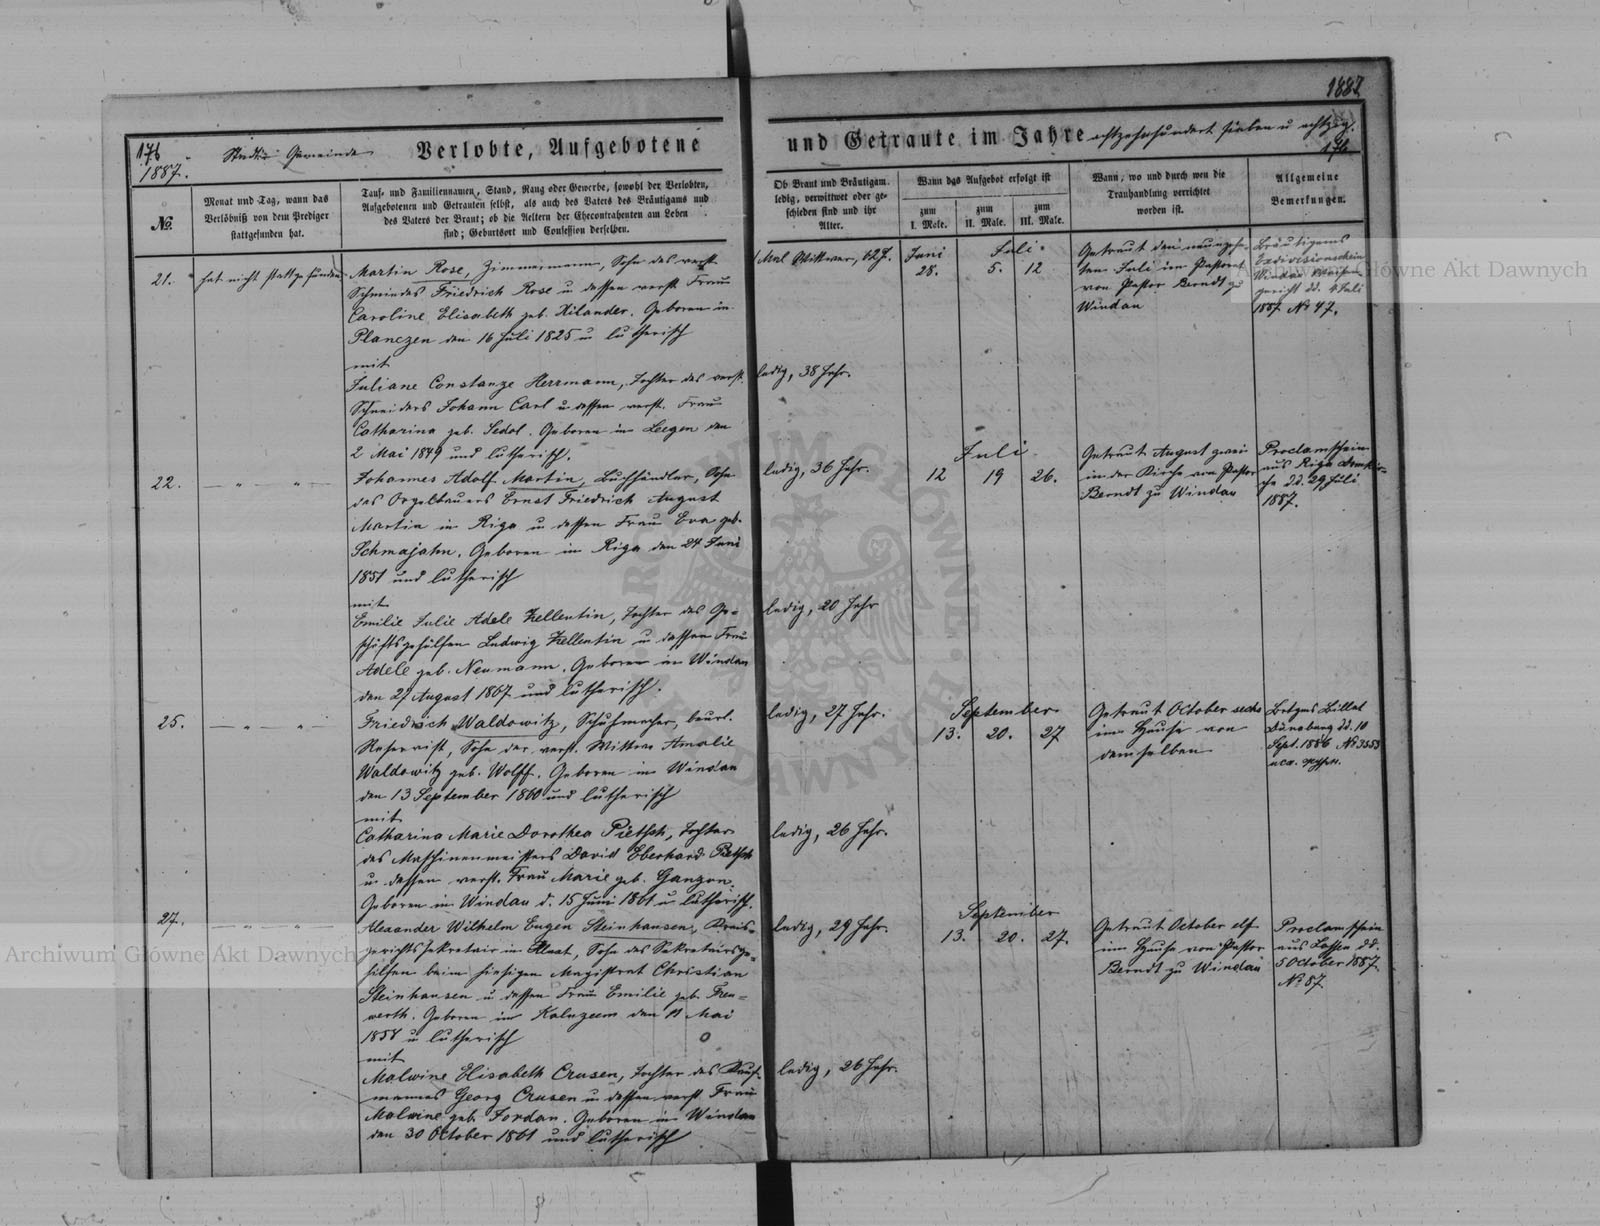 1887.
176
1887.
Stadt- Gemeinde
Verlobte, Aufgebotene
und Getraute im Jahre achtzehnhundert sieben u achtzig.
176
№.
Monat und Tag, wann das
Verlöbniß von dem Prediger
stattgefunden hat.
Tauf- und Familiennamen, Stand, Rang oder Gewerbe, sowohl der Verlobten,
Aufgebotenen und Getrauten selbst, als auch des Vaters des Bräutigams und
des Vaters der Braut; ob die Aeltern der Ehecontrahenten am Leben
sind; Geburtsort und Confession derselben.
Ob Braut und Bräutigam
ledig, verwittwet oder ge-
schieden sind und ihr
Alter.
Wann das Aufgebot erfolgt ist
zum
I. Male.
zum
II. Male.
zum
III. Male.
Wann, wo und durch wen die
Trauhandlung verrichtet
worden ist.
Allgemeine
Bemerkungen.
21.
hat nicht stattgefunden
Martin Rose, Zimmermann, Sohn des verst.
Schmiedes Friedrich Rose u dessen verst. Frau
Caroline Elisabeth geb. Xilander. Geboren in
Planczen den 16 Juli 1825 u lutherisch
mit
Juliane Constanze Herrmann, Tochter des verst.
Schneiders Johann Carl u dessen verst. Frau
Catharina geb. Sedol. Geboren in Leegen den
2 Mai 1849 und lutherisch.
1 Mal Wittwer, 62 J.
ledig, 38 Jahr.
Juni
28.
Juli
5. 12
Getraut den neunzehn-
ten Juli im Pastorat
von Pastor Berndt zu
Windau
Bräutigams
Exdivisionsschein
Windau Waisen-
gericht dd. 4 Juli
1887 № 47.
22.
— " — " —
Johannes Adolf Martin, Buchhändler, Sohn
des Orgelbauers Ernst Friedrich August
Martin in Riga u dessen Frau Eva geb.
Schmajahn. Geboren in Riga den 24 Juni
1851 und lutherisch
mit
Emilie Julie Adele Zellentin, Tochter des Ge-
schäftsgehülfen Ludwig Zellentin u dessen Frau
Adele geb. Neumann. Geboren in Windau
den 27 August 1867 und lutherisch.
ledig, 36 Jahr.
ledig, 20 Jahr
Juli
12 19 26.
Getraut August zwei
in der Kirche von Pastor
Berndt zu Windau
Proclamschein
aus Riga Domkir-
che dd. 29 Juli
1887.
25.
— " — " —
Friedrich Waldowitz, Schuhmacher, beurl.
Reservist, Sohn der verst. Wittwe Amalie
Waldowitz geb. Wolff. Geboren in Windau
den 13 September 1860 und lutherisch
mit
Catharina Marie Dorothea Pietsch, Tochter
des Maschinenmeisters David Eberhard Pietsch
u dessen verst. Frau Marie geb. Ganzon.
Geboren in Windau d. 15 Juni 1861 u lutherisch.
ledig, 27 Jahr.
ledig, 26 Jahr.
September
13. 20. 27
Getraut October sechs
im Hause von
demselben
Bräut̄gms Billet
Dünaburg dd. 10
Sept. 1886 № 3553
27.
— " — " —
Alexander Wilhelm Eugen Steinhausen, Kreis-
gerichtssekretair in Pleat, Sohn des Sekretairsge-
hilfen beim hiesigen Magistrat Christian
Steinhausen u dessen Frau Emilie geb. Freu-
werth. Geboren in Kalnzeem den 11 Mai
1858 u lutherisch
mit
Malwine Elisabeth Crusen, Tochter des Kauf-
mannes Georg Crusen u dessen verst Frau
Malwine geb. Jordan. Geboren in Windau
den 30 October 1861 und lutherisch
ledig, 29 Jahr.
ledig, 26 Jahr.
September
13. 20. 27.
Getraut October elf
im Hause von Pastor
Berndt zu Windau
Proclamschein
aus Lassen dd.
5 October 1887
№ 87
Archiwum Główne Akt Dawnych
Archiwum Główne Akt Dawnych
ARCHIWUM GŁÓWNE AKT DAWNYCH